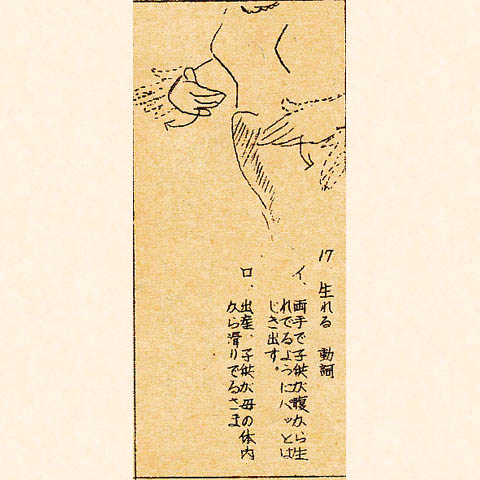 17 生れる 動詞
イ、両手で子供が腹から生
れでるようにパッとは
じき出す。
ロ、出産、子供が母の体内
から滑りでるさま